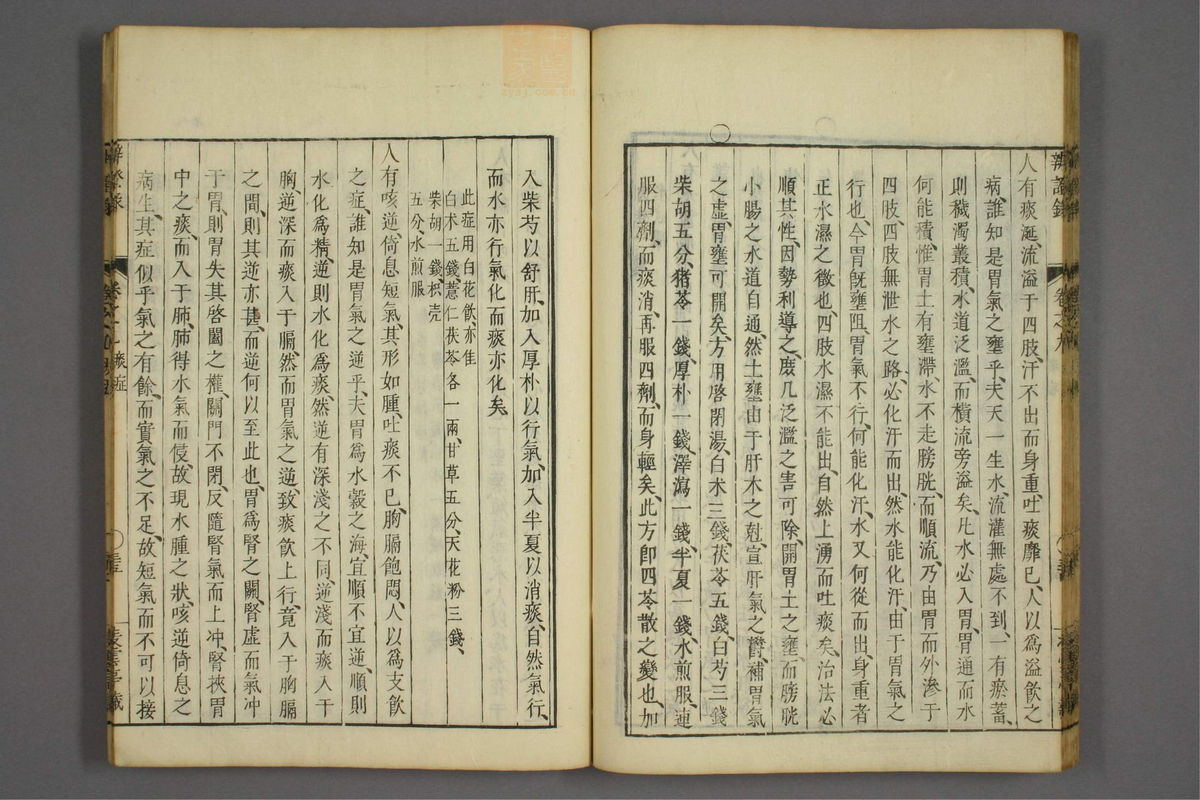 辨證錄
卷之九
人有痰涎流溢于四肢、汗不出而身重、吐痰靡已、人以爲溢飲之
病、誰知是胃氣之壅乎、夫天一生水、流灌無處不到、一有瘀蓄、
則穢濁叢積、水道泛濫、而橫流旁溢矣、凡水必入胃、胃通而水
何能積、惟胃土有壅滯、水不走膀胱、而順流、乃由胃而外滲于
四肢、四肢無泄水之路、必化汗而出、然水能化汗、由于胃氣之
行也、今胃旣壅阻、胃氣不行、何能化汗、水又何從而出、身重者
正水濕之徵也、四肢水濕不能出、自然上湧而吐痰矣、治法必
順其性、因勢利導之、庶几泛濫之害可除、開胃土之壅、而膀胱
小腸之水道自通、然土壅由于肝木之尅、宣肝氣之欝、補胃氣
之虛、胃壅可開矣、方用啓閉湯、白术三錢、茯苓五錢、白芍三錢
柴胡五分、猪苓一錢、厚朴一錢、澤瀉一錢、半夏一錢、水煎服、連
服四劑、而痰消、再服四劑、而身輕矣、此方卽四苓散之變也、加
入柴芍以舒肝、加入厚朴以行氣、加入半夏以消痰、自然氣行、
而水亦行、氣化而痰亦化矣、
此症用白花飲、亦佳
白术五錢、薏仁茯苓各一兩、甘草五分、天花粉三錢、
柴胡一錢、枳壳
五分、水煎服
人有咳逆倚息短氣、其形如腫、吐痰不已、胸膈飽悶、人以爲支飲
之症、誰知是胃氣之逆乎、夫胃爲水穀之海、宜順不宜逆、順則
水化爲精、逆則水化爲痰、然逆有深淺之不同、逆淺而痰入于
胸、逆深而痰入于膈、然而胃氣之逆、致痰飲上行、竟入于胸膈
之間、則其逆亦甚、而逆何以至此也、胃爲腎之關、腎虛而氣冲
于胃、則胃失其啓闔之權、關門不閉、反隨腎氣而上冲、腎挾胃
中之痰、而入于肺、肺得水氣而侵、故現水腫之狀、咳逆倚息之
病生、其症似乎氣之有餘、而實氣之不足、故短氣而不可以接
痰症